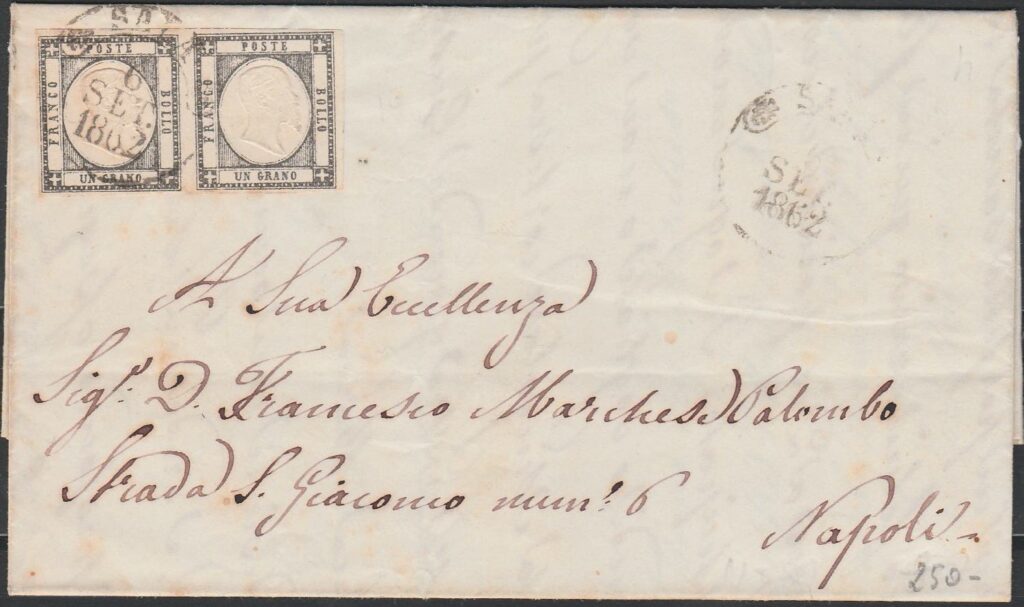 POSTE
FRANCO
BOLLO
UN GRANO
POSTE
FRANCO
BOLLO
UN GRANO
6
SET.
1862
6
SET.
1862
A Sua Eccellenza
Sigr. D. Francesco Marchese Palombo
Strada S. Giacomo num.º 6
Napoli
250-